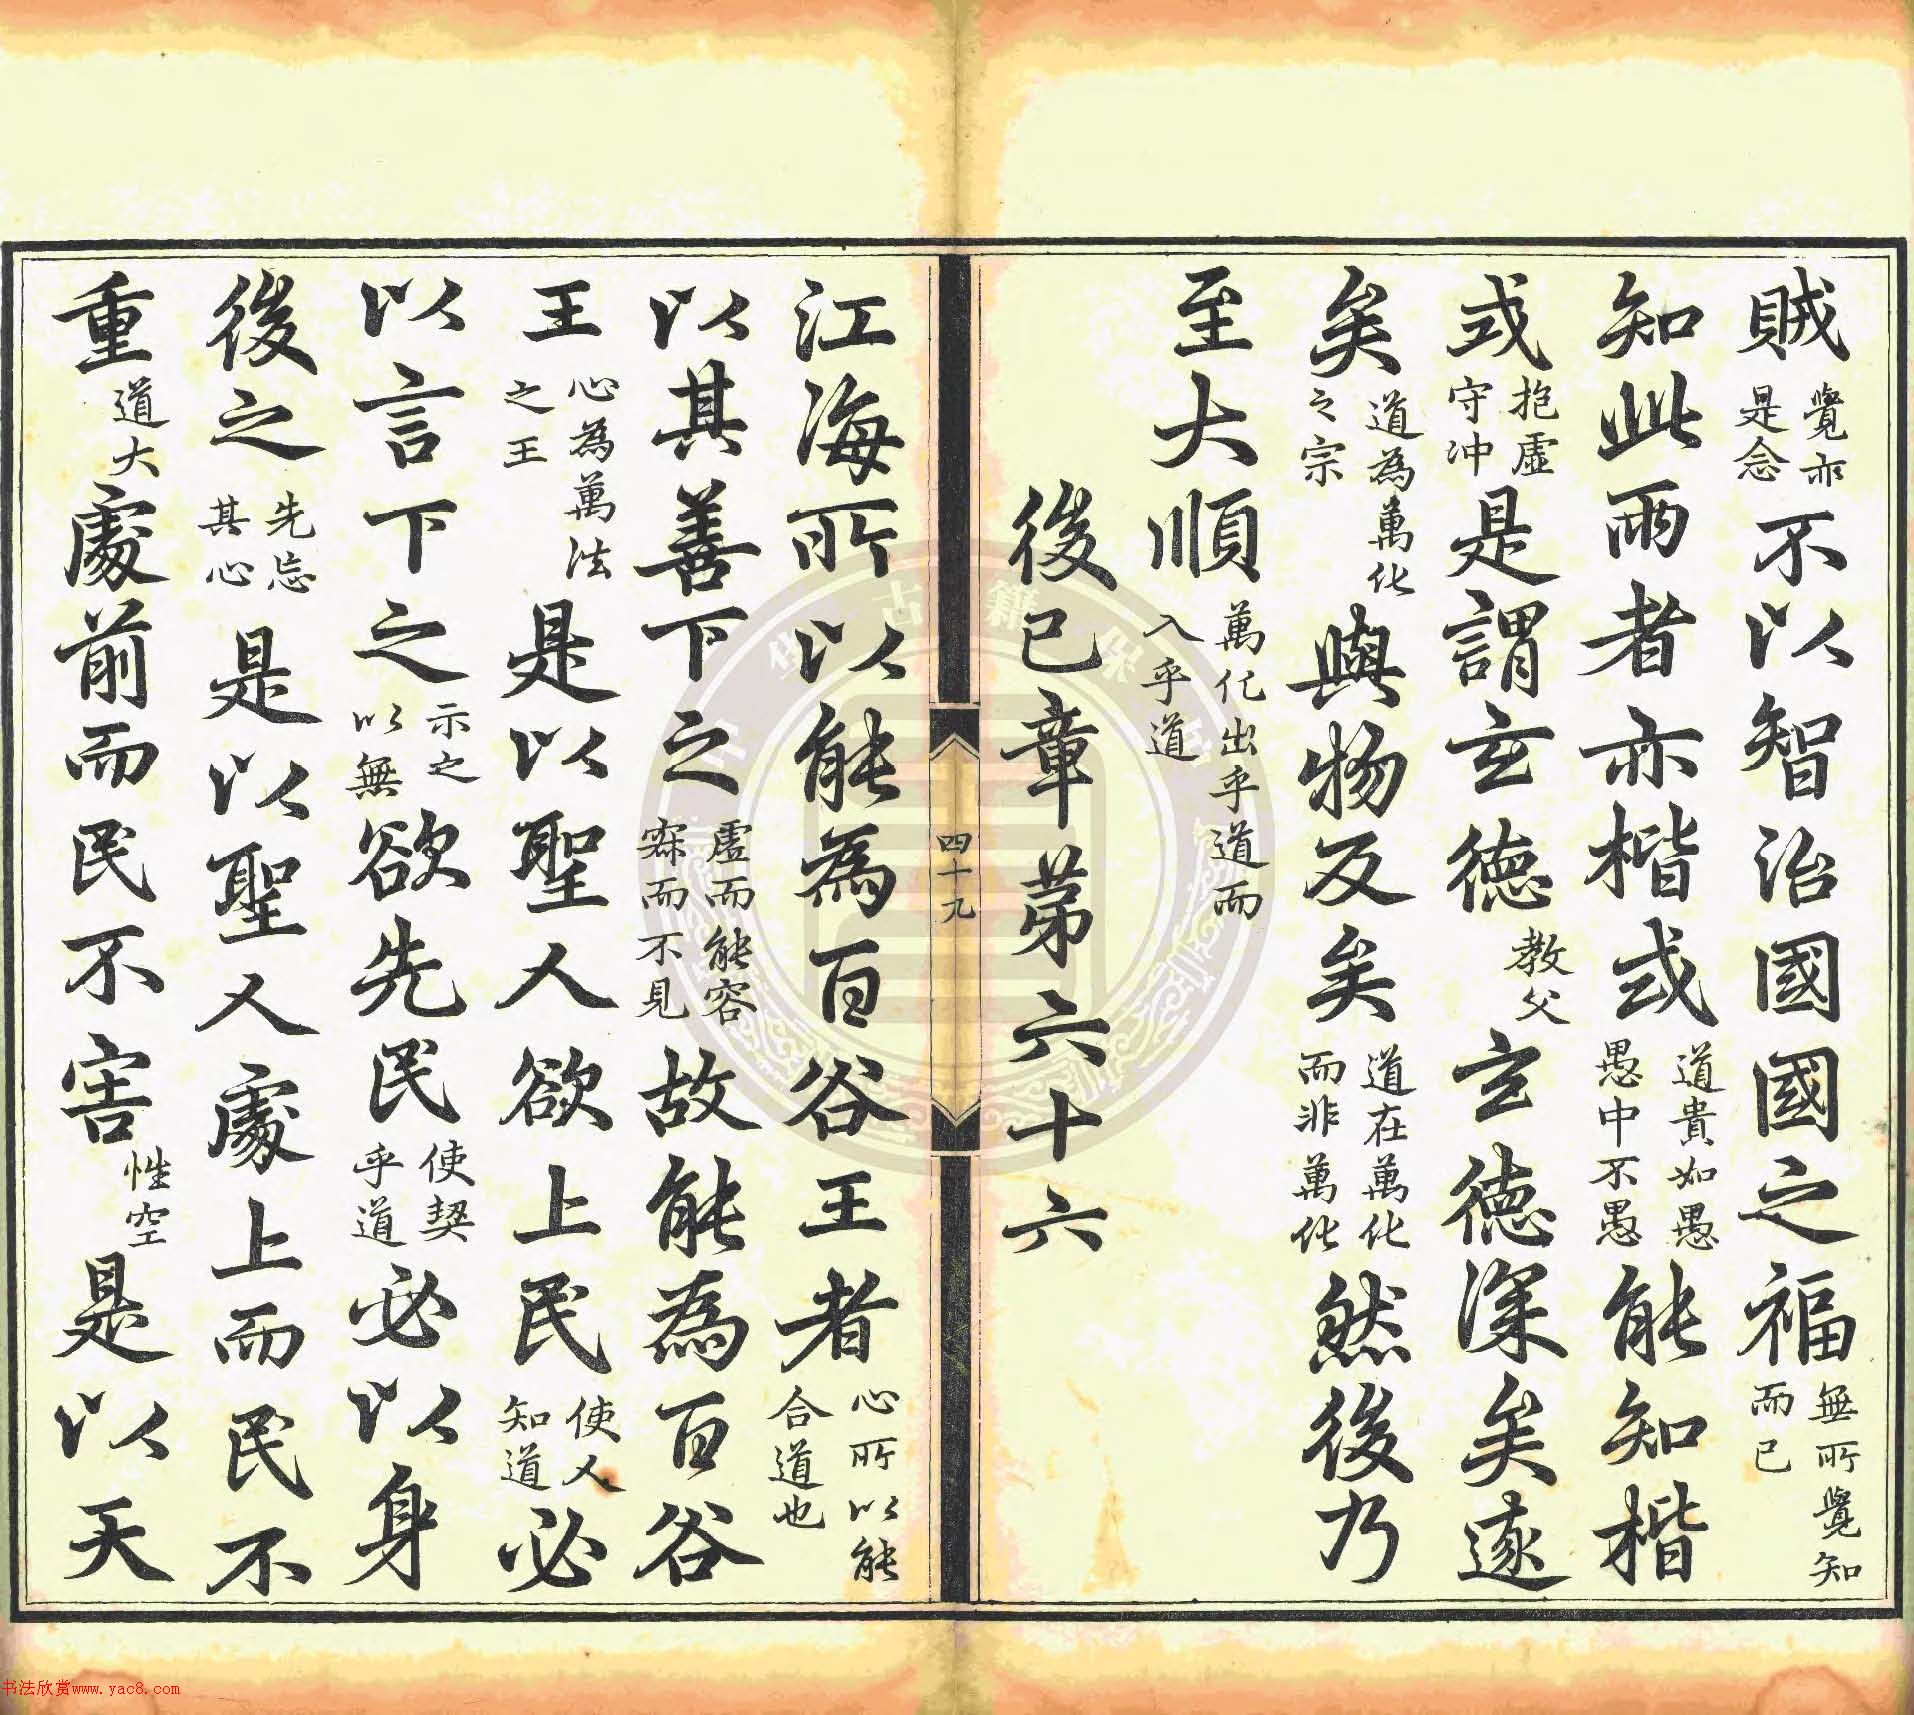 賊覺亦是念不以智治國國之福無所覺知而已
知此兩者亦楷式道貴如愚愚中不愚能知楷
式抱虛守冲是謂玄德教父玄德深矣遠
矣道為萬化之宗與物反矣道在萬化而非萬化然後乃
至大順萬化出乎道而入乎道
後己章第六十六
四十九
江海所以能為百谷王者心所以能合道也
以其善下之虛而能容寂而不見故能為百谷
王心為萬法之王是以聖人欲上民使人知道必
以言下之示之以無欲先民使契乎道必以身
後之先忘其心是以聖人處上而民不
重道大處前而民不害性空是以天
书法欣赏www.yac8.com